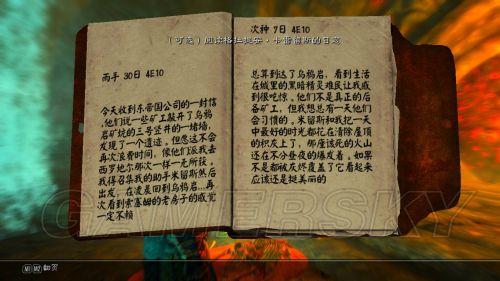 （可选）阅读格拉提安·卡雷留斯的日志
雨手 30日 4E10
今天收到东帝国公司的一封信
,他们说一些矿工敲开了乌鸦
岩矿坑的三号竖井的一堵墙,
发现了一个遗迹。但愿这不会
再次浪费时间，像他们派我去
西罗地尔那次一样一无所获。
我得召集我的助手米留斯然后
出发，在凌晨回到乌鸦岩...再
次看到索塞姆的老房子的感觉
一定不赖
次种 7日 4E10
总算到达了乌鸦岩，看到生活
在城里的黑暗精灵难民让我感
到很吃惊。他们不是真正的后
备矿工，但我想总有一天他们
会习惯的。米留斯和我把一天
中最好的时光都花在清除屋顶
的积灰上了，那座该死的火山
还在不分昼夜的爆发着。如果
不是都被灰烬覆盖了它看起来
应该还是挺美丽的
GAMERSKY
M1 M2 翻页